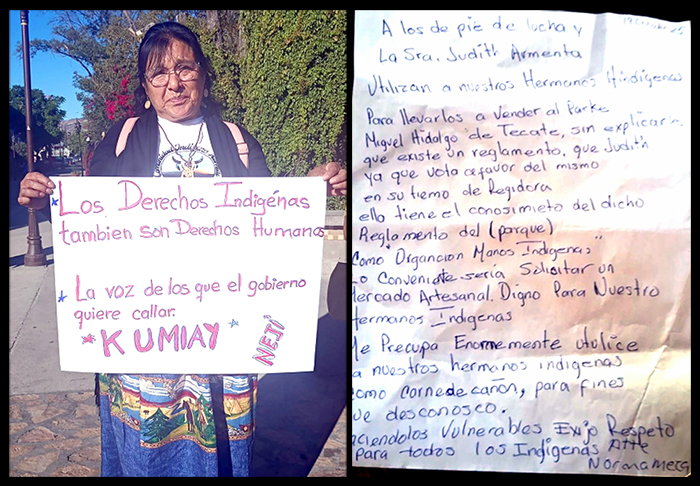 Los Derechos Indigénas
tambien son Derechos Humanos
La voz de los que el gobierno
quiere callar.
KUMIAY
NEJI
A los de pie de lucha y
La Sra. Judith Armenta
Utilizan a nuestros Hermanos Hindigenas
Para llevarlos a vender al Parke
Miguel Hidalgo de Tecate, sin explicarles
que existe un reglamento, que Judith
ya que voto a favor del mismo
en su tiemo de Regidora
ella tiene el conosimieto del dicho
Reglamento del (parque)
Como Organcion Manos Indigenas"
Lo Conveniete seria Solicitar un
Mercado Artesanal. Digno Para Nuestro
Hermanos Indigenas
Me Precupa Enormemente utulice
a nuestros hermanos indigenas
como carne de cañon, para fines
que desconosco.
aciendolos Vulnerables Exijo Respeto
para todos los Indigenas Atte
Norma Meza